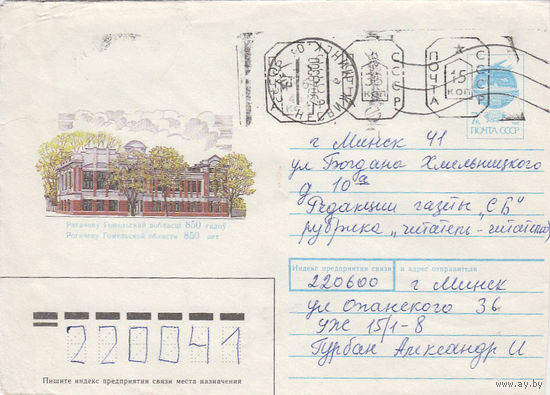 ПОЧТА
СССР
15
КОП
НЕСВИЖ
7к ПОЧТА СССР
г Минск 41
ул Богдана Хмельницкого
д 10а
Редакции газеты „СБ"
рубрика „читатель-читателю
Рагачову Гомельскай вобласці 850 гадоў
Рогачеву Гомельской области 850 лет
Индекс предприятия связи и адрес отправителя
220600 г Минск
ул Опанского 36
УЖ 15/1-8
Гурбан Александр И
220041
Пишите индекс предприятия связи места назначения
www.ay.by